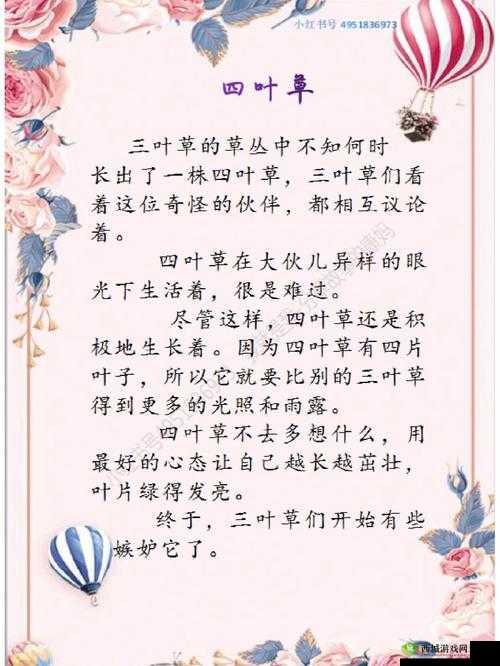 小红书号 4951836973
四叶草
三叶草的草丛中不知何时
长出了一株四叶草，三叶草们看
着这位奇怪的伙伴，都相互议论
着。
四叶草在大伙儿异样的眼
光下生活着，很是难过。
尽管这样，四叶草还是积
极地生长着。因为四叶草有四片
叶子，所以它就要比别的三叶草
得到更多的光照和雨露。
四叶草不去多想什么，用
最好的心态让自己越长越茁壮，
叶片绿得发亮。
终于，三叶草们开始有些
嫉妒它了。
西城游戏网